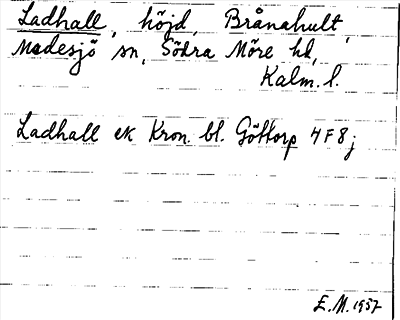 Ladhall, höjd, Brånahult,
Madesjö sn, Södra Möre hd,
Kalm. l.
Ladhall ek Kron. bl. Göttorp 4F8;
E.M. 1957